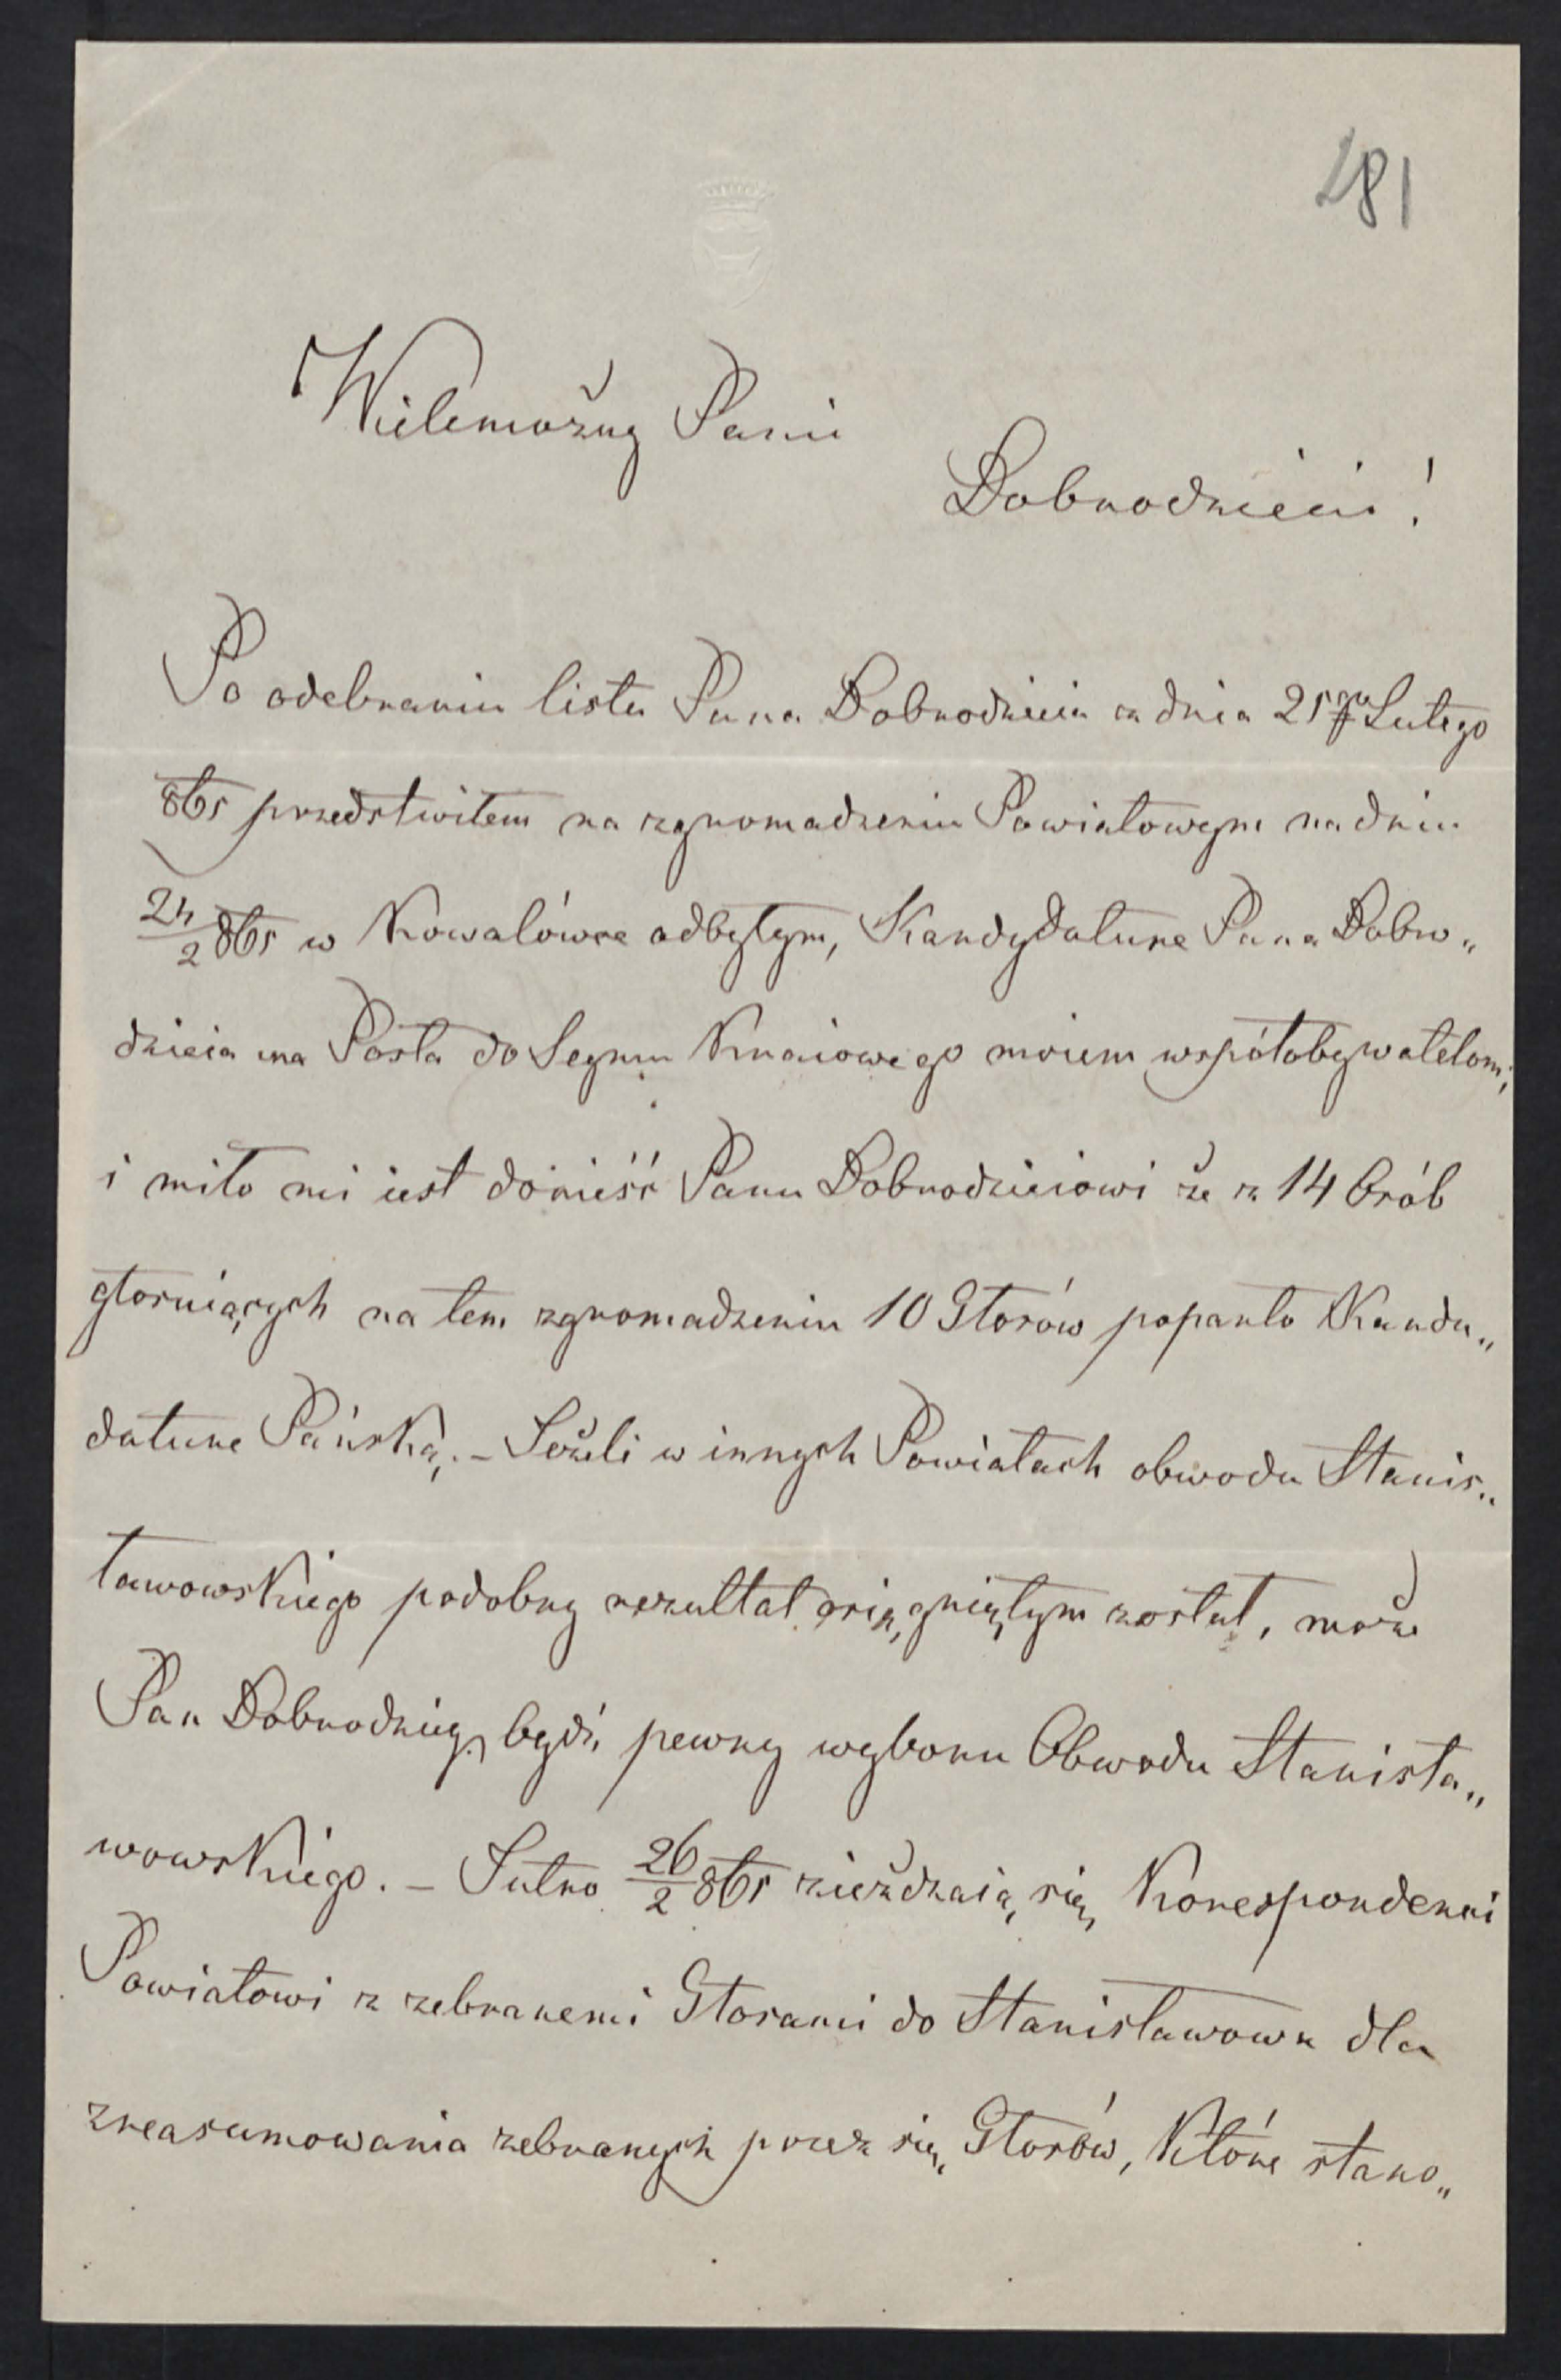 281
Wielmożny Panie
Dobrodzieiu!
Po odebraniu listu Pana Dobrodzieia z dnia 21go Lutego
865 przedstwiłem na zgromadzeniu Powiatowym na dniu
24/2 865 w Kowalówce odbytym, Kandydature Pana Dobro„
dzieia na Posła do Seymu Kraiowego moiem współobywatelom;
i miło mi iest donieść Panu Dobrodzieiowi że z 14 Osób
głosuiących na tem zgromadzeniu 10 Głosów poparło Kandy„
dature Pańską. – Jeżeli w innych Powiatach obwodu Stanis„
ławowskiego podobny rezultat osiągniętym został, może
Pan Dobrodziey być pewny wyboru Obwodu Stanisła„
wowskiego. – Jutro 26/2 865 zieżdzaią się Korespondenci
Powiatowi z zebranemi Głosami do Stanisławowa dla
zreasumowania zebranych przez się Głosów, Które stano„